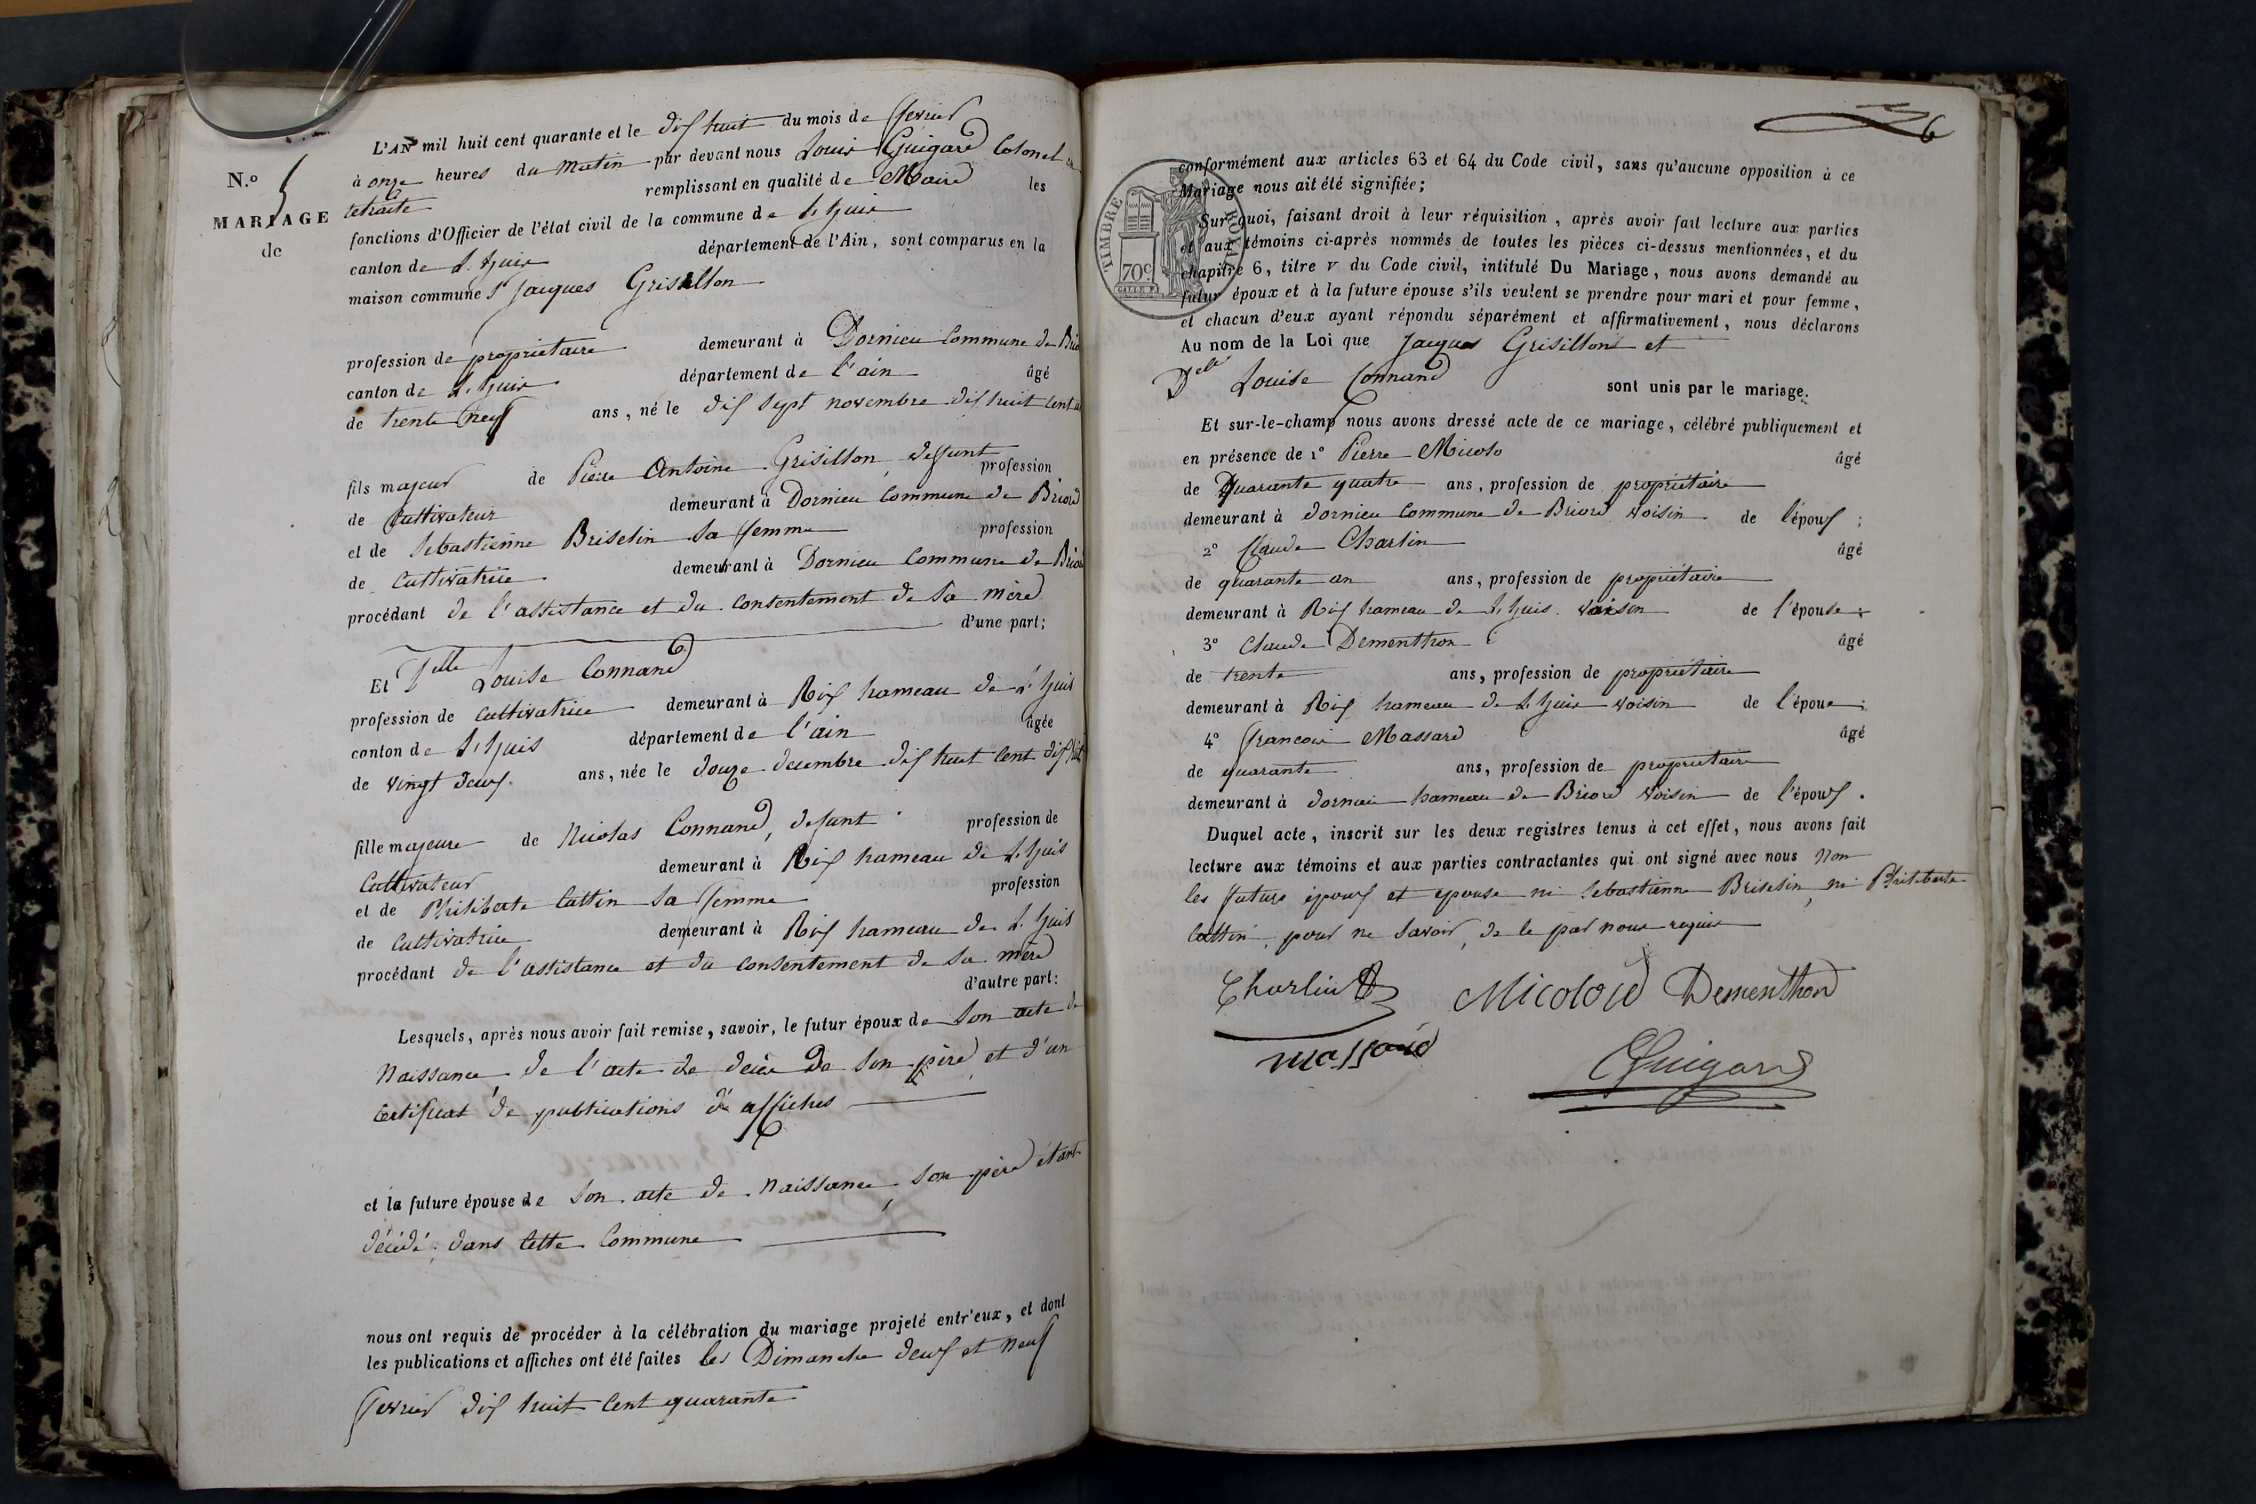 N.º 5
MARIAGE
de
L'AN mil huit cent quarante et le dix huit du mois de fevrier
à onze heures du matin par devant nous Louis Guigard Colonel en
retraite remplissant en qualité de Maire les
fonctions d'Officier de l'état civil de la commune de St huis
canton de St. huis département de l'Ain, sont comparus en la
maison commune Sr Jacques Grisillon
profession de propriétaire demeurant à Dornieu Commune de
canton de St. huis département de l'ain âgé
de trente neuf ans, né le dix sept novembre dix huit cent
fils majeur de Pierre Antoine Grisillon, deffunt profession
de cultivateur demeurant à Dornieu Commune de Briord
et de Sebastienne Briselin sa femme profession
de Cultivatrice demeurant à Dornieu Commune de
procédant de l'assistance et du consentement de sa mère
d'une part;
Et Delle Louise Connand
profession de cultivatrice demeurant à Rix hameau de St huis
canton de St huis département de l'ain âgée
de vingt deux ans, née le douze decembre dix huit cent
fille majeure de Nicolas Connand, defunt profession de
Cultivateur demeurant à Rix hameau de St huis
et de Philiberte Cattin sa femme profession
de Cultivatrice demeurant à Rix hameau de St huis
procédant de l'assistance et du consentement de sa mère
d'autre part:
Lesquels, après nous avoir fait remise, savoir, le futur époux de son acte de
Naissance, de l'acte de décès de son père, et d'un
certificat de publications & affiches
et la future épouse de son acte de Naissance, son père étant
décédé dans cette Commune
nous ont requis de procéder à la célébration du mariage projeté entr'eux, et dont
les publications et affiches ont été faites les Dimanche deux et neuf
fevrier dix huit cent quarante
6
TIMBRE ROYAL
70c
conformément aux articles 63 et 64 du Code civil, sans qu'aucune opposition à ce
Mariage nous ait été signifiée;
Sur quoi, faisant droit à leur réquisition, après avoir fait lecture aux parties
et aux témoins ci-après nommés de toutes les pièces ci-dessus mentionnées, et du
chapitre 6, titre V du Code civil, intitulé Du Mariage, nous avons demandé au
futur époux et à la future épouse s'ils veulent se prendre pour mari et pour femme,
et chacun d'eux ayant répondu séparément et affirmativement, nous déclarons
Au nom de la Loi que Jacques Grisillon et
Delle Louise Connand sont unis par le mariage.
Et sur-le-champ nous avons dressé acte de ce mariage, célébré publiquement et
en présence de 1º Pierre Micolo âgé
de Quarante quatre ans, profession de propriétaire
demeurant à dornieu Commune de Briord voisin de l'époux;
2º Claude Charlin âgé
de quarante an ans, profession de propriétaire
demeurant à Rix hameau de St huis voisin de l'épouse;
3º Claude Dementhon âgé
de trente ans, profession de propriétaire
demeurant à Rix hameau de St huis voisin de l'épouse;
4º francois Massard âgé
de quarante ans, profession de propriétaire
demeurant à dornieu hameau de Briord voisin de l'époux.
Duquel acte, inscrit sur les deux registres tenus à cet effet, nous avons fait
lecture aux témoins et aux parties contractantes qui ont signé avec nous Non
les futurs époux et epouse ni Sebastienne Briselin, ni Philiberte
Cattin, pour ne savoir, de le par nous requis
Charlin Micolord Dementhon
Massard
Guigard